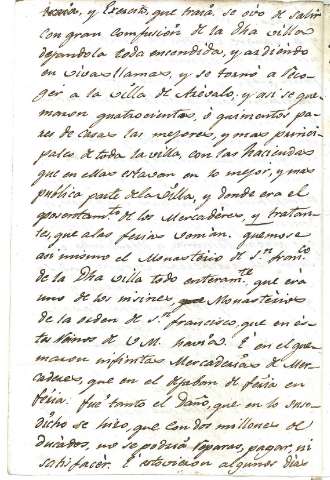 y Exercito, que traía, se ovo de salir
con gran confusión de la Dha Villa
dejandola toda encendida, y ardiendo
en vivas llamas, y se tornó a reco-
ger a la villa de Arévalo, y asi se que-
maron quatrocientos, ó quinientos pa-
res de casas las mejores, y mas princi-
pales de toda la villa, con las haciendas
que en ellas estavan en lo mejor, y mas
publica parte de la Villa, y donde era el
aposentamto de los Mercadéres, y tratan-
tes, que a las ferias venian. Quemose
asi mismo el Monasterio de Sn. Franco
de la Dha Villa todo enteramte. que era
uno de los insines Monastérios
de la orden de Sn. Francisco, que en es-
tos Reinos de V. M. havía. É en el que-
maron infinitas Mercaderías de Mer-
caderes, que en el dejaban de féria en
féria. fué tanto el Daño, que en lo suso-
dicho se hizo, que con dos millones de
ducados, no se podría reparar, pagar, ni
satisfacér. É estovieron algunos dias